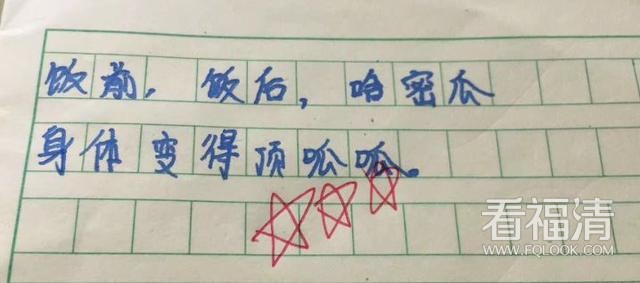 饭前，饭后，哈密瓜
身体变得顶呱呱。
看福清
WWW.FQLOOK.COM